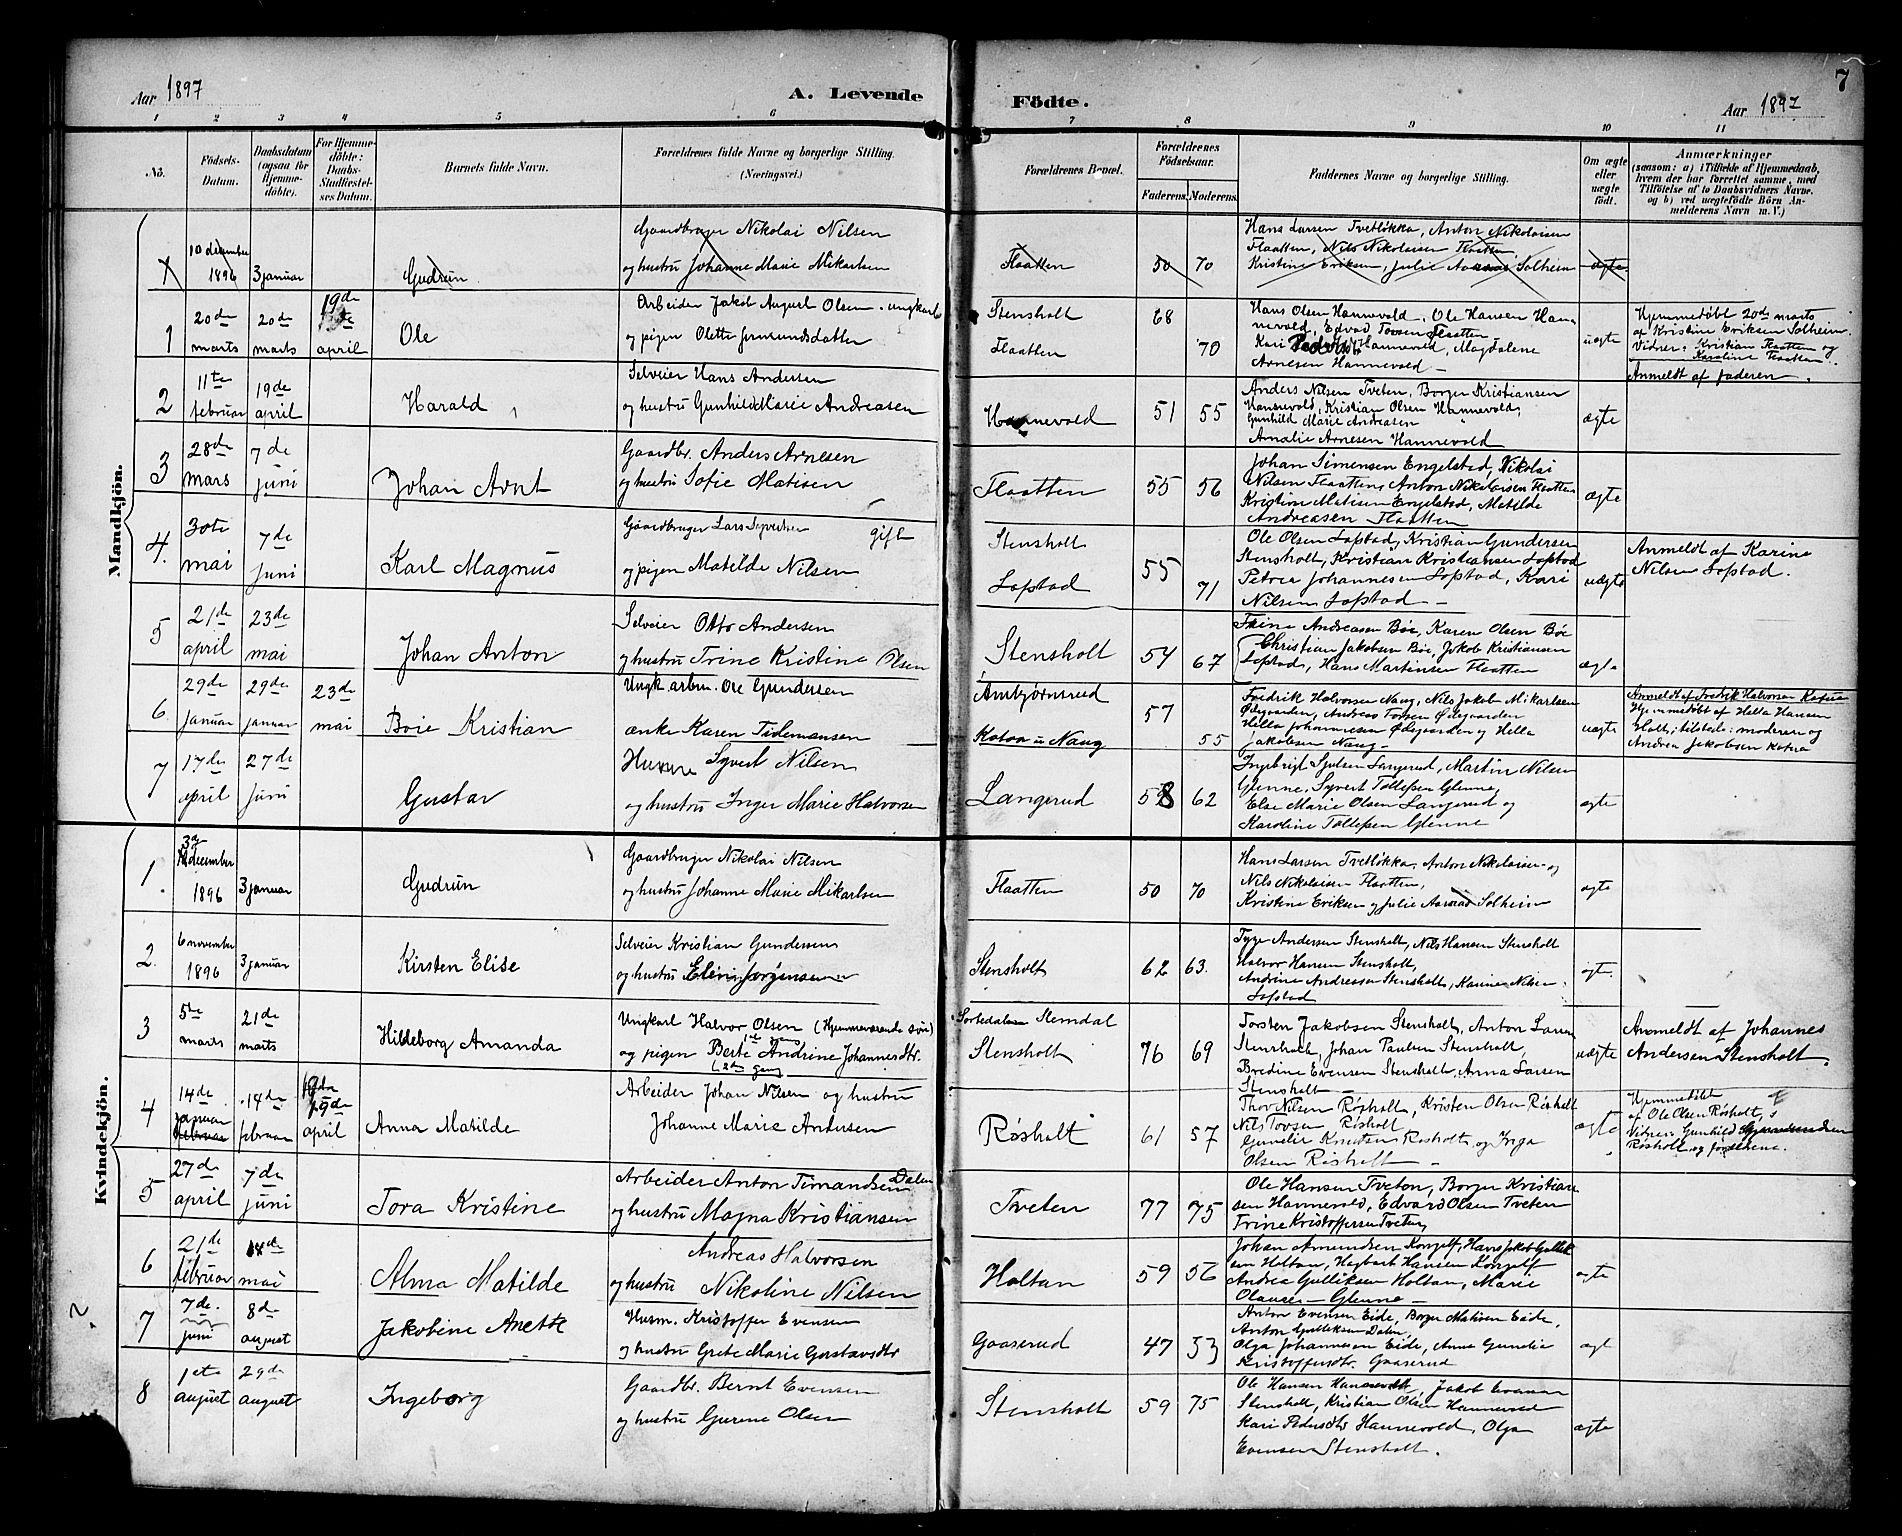 Aar 1897
A. Levende
Födte.
Aar 1897
7
1 2 3 4 5 6 7 8 9 10 11
No.
Födsels-Datum.
Daabsdatum (ogsaa for Hjemme-döbte).
For Hjemme-döbte: Daabs-Stadfæstel-ses Datum.
Barnets fulde Navn.
Forældrenes fulde Navne og borgerlige Stilling.
(Næringsvei.)
Forældrenes Bopæl.
Forældrenes Födselsaar.
Faderens. Moderens.
Faddernes Navne og borgerlige Stilling.
Om ægte eller uægte født.
Anmærkninger
(saasom: a) i Tilfælde af Hjemmedaab, hvem der har forrettet samme, med Tilföielse af to Daabsvidners Navne, og b) ved uægtefödte Börn An-melderens Navn m. V.)
Mandkjön.
10 december 1896 3 januar Gudrun
Gaardbruger Nikolai Nilsen
og hustru Johanne Marie Mikarlsen
Flaatten 50 70
Hans Larsen Tvetløkka, Anton Nikolaisen
Flaatten, Nils Nikolaisen Flaatten
Kristine Eriksen, Julie Solheim
ægte
1 20de marts 20de marts 19de april Ole
Arbeider Jakob August Olsen ungkarl
og pigen Olette
Stensholt 68
Flaatten 70
Hans Olsen Hannevold, Ole Hansen Han-
nevold, Edvad Flaatten
Kari Hannevold, Magdalene
Arnesen Hannevold
uægte
Hjemmedøbt 20de marts
af Kristine Eriksen Solheim.
Vidner: Kristian Flaatten og
Karoline Flaatten.
Anmeldt af faderen.
2 11te februar 19de april Harald
Selveier Hans Andersen
og hustru Gunhild Marie Andreasen
Hannevold 51 55
Anders Nilsen Tveten, Borger Kristiansen
Hannevold, Kristian Olsen Hannevold,
Gunhild Marie Andreasen
Amalie Arnesen Hannevold
ægte
3 28de mars 7de juni Johan Arnt
Gaardbr. Anders Arnesen
og hustru Sofie Matisen
Flaatten 55 56
Johan Simensen Engelstad, Nikolai
Nilsen Flaatten, Anton Nikolaisen Flaatten
Kristian Matisen Engelstad, Matilde
Andreasen Flaatten
ægte
4. 30te mai 7de juni Karl Magnus
Gaardbruger Lars gift
og pigen Matilde Nilsen
Stensholt 55
Lofstad 71
Ole Olsen Lofstad, Kristian Gundersen
Stensholt, Kristian Kristiansen Lofstad
Petrea Johannesen Lofstad, Kari
Nilsen Lofstad
uægte
Anmeldt af Karine
Nilsen Lofstad.
5 21de april 23de mai Johan Anton
Selveier Otto Andersen
og hustru Trine Kristine Olsen
Stensholt 54 67
Trine Andreasen Bøe, Karen Olsen Bøe
Christian Jakobsen Bøe, Jakob Kristiansen
Lofstad, Hans Martinsen Flaatten
ægte
6. 29de januar 29de januar 23de mai Boie Kristian
Ungk. arbm. Ole Gundersen
enke Karen Tidemansen
Ambjørnsrud 57
Kataa u Naug 55
Fredrik Halvorsen Naug, Nils Jakob Mikarlsen
Ødegaarden, Andreas Torsen Ødegaarden
Hella Johannesen Ødegaarden og Hella
Jakobsen Naug
uægte
Anmeldt af Fredrik Halvorsen
Hjemmedøbt af Hella Hansen
Holt; tilstede: moderen og
Andrea Jakobsen
7 17de april 27de juni Gustav
Syvert Nilsen
og hustru Inger Marie Halvorsen
Langerud 58 62
Ingebrigt Langerud, Martin Nilsen
Glenne, Syvert Tollefsen Glenne,
Else Marie Olsen Langerud og
Karoline Tollefsen Glenne
ægte
Kvindekjön.
1. december 1896 3 januar Gudrun
Gaardbruger Nikolai Nilsen
og hustru Johanne Marie Mikarlsen
Flaatten 50 70
Hans Larsen Tvetløkka, Anton Nikolaisen og
Nils Nikolaisen Flaatten,
Kristine Eriksen og Julie Solheim
ægte
2. 6 november 1896 3 januar Kirsten Elise
Selveier Kristian Gundersen
og hustru Jørgensen
Stensholt 62 63.
Tyge Andersen Stensholt, Nils Hansen Stensholt
Halvor Hansen Stensholt,
Andrine Andreassen Stensholt, Karine Nilsen
Lofstad
ægte.
3 5te marts 21de marts Hildeborg Amanda
Ungkarl Halvor Olsen (Hjemmeværende søn) 1ste gang
og pigen Berte Andrine Johannesdtr.
(2den gang)
Stemdal
Stensholt 76 69
Torsten Jakobsen Stensholt, Anton Larsen
Stensholt, Johan Paulsen Stensholt,
Bredine Evensen Stensholt, Anna Larsen
Stensholt
uægte
Anmeldt af Johannes
Andersen Stensholt.
4 14de januar 14de februar 19de april Anna Matilde
Arbeider Johan Nilsen og hustru
Johanne Marie Andersen
Røsholt 61 57
Thov Nilsen Røsholt, Kristen Olsen Røsholt
Nils Tovsen Røsholt
Gunelie Knutsen Røsholt, og Inga
Olsen Røsholt
ægte
Hjemmedøbt
af Ole Olsen Røsholt,
Vidner: Gunhild
Røsholt og forældrene.
5 27de april 7de juni Tora Kristine
Arbeider Anton Timandsen Dalen
og hustru Magna Kristiansen
Tveten 77 75
Ole Hansen Tveten, Borger Kristian
sen Hannevold, Edvard Olsen Tveten
Trine Kristoffersen Tveten,
6 21de februar mai Alma Matilde
Andreas Halvorsen
og hustru Nikoline Nilsen
Holtan 59 56
Johan Amundsen Hans Jakob Gullik
sen Holtan, Hagbart Hansen
Andrea Gulliksen Holtan, Marie
Olausen Glenne
ægte
7 7de juni 8de august Jakobine Anette
Husm. Kristoffer Evensen
og hustru Grete Marie Gustavsdtr
Gaaserud 47 53
Anton Evensen Eide, Borger Matisen Eide,
Anton Gulliksen Dalen,
Olga Johannesen Eide, Anne Gunelie
Kristoffersdtr. Gaaserud
ægt
8 1ste august 29de august Ingeborg
Gaardbr. Bernt Evensen
og hustru Gurine Olsen
Stensholt 59 75
Ole Hansen Hannevold, Jakob Evensen
Stensholt, Kristian Olsen Hannevold
Kari Pedersdtr Hannevold, Olga
Evensen Stensholt.
ægte